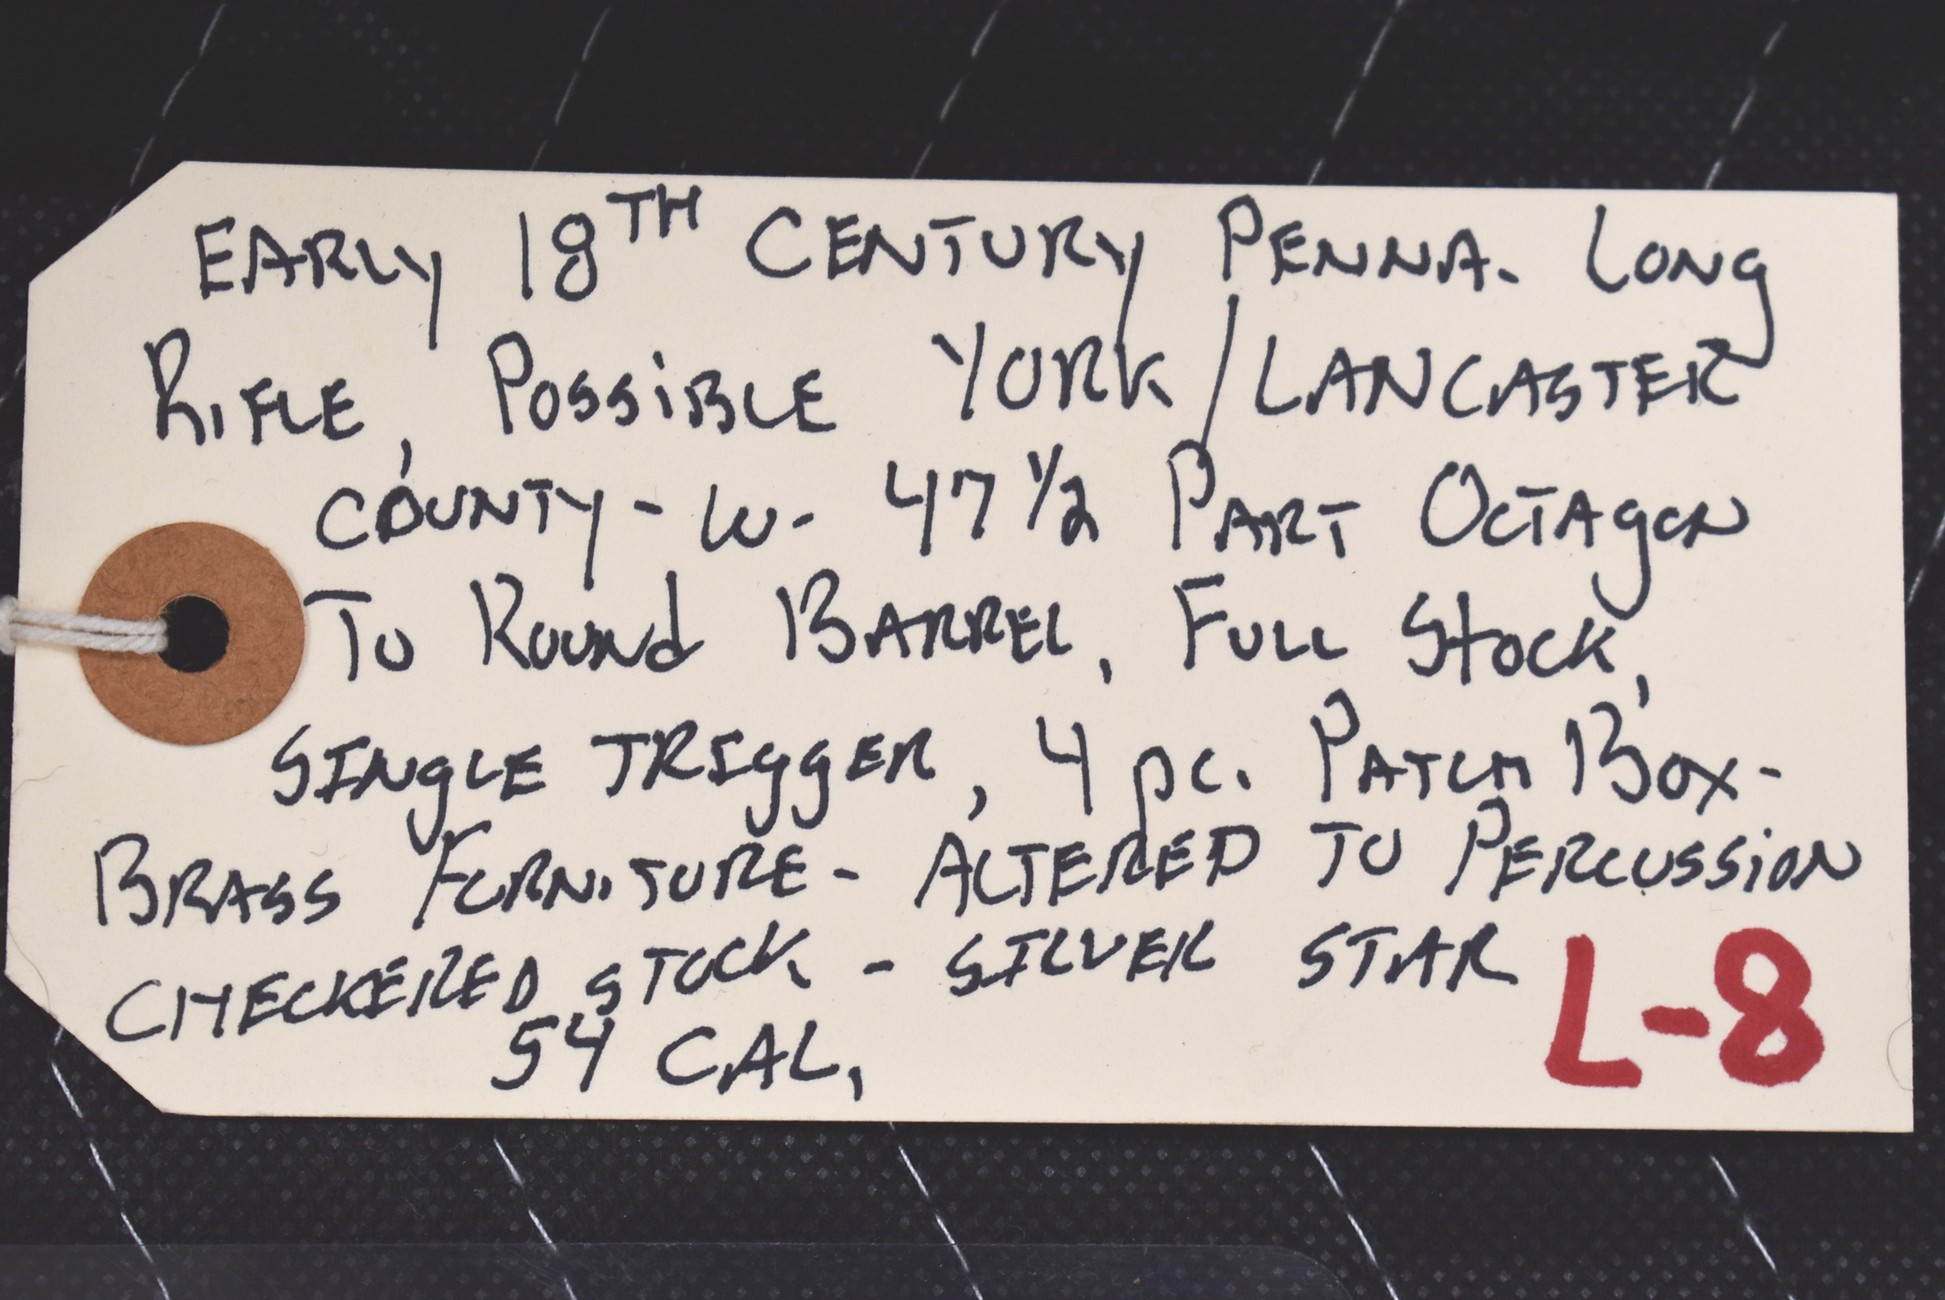 EARLY 18TH CENTURY PENNA. LONG
RIFLE, POSSIBLE YORK/LANCASTER
COUNTY - W- 47 1/2 PART OCTAGON
TO ROUND BARREL, FULL STOCK,
SINGLE TRIGGER, 4 pc. PATCH BOX-
BRASS FURNITURE - ALTERED TO PERCUSSION
CHECKERED STOCK - SILVER STAR
54 CAL,
L-8